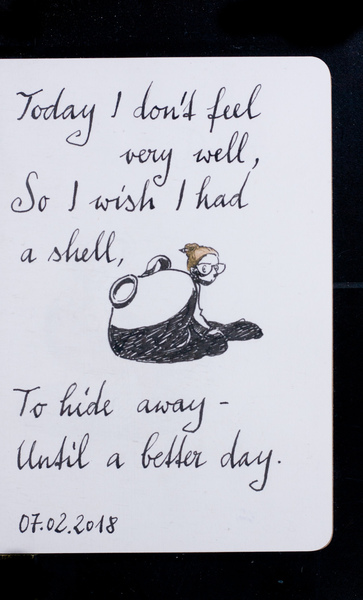 Today I don't feel
very well,
So I wish I had
a shell,
To hide away -
Until a better day.
07.02.2018